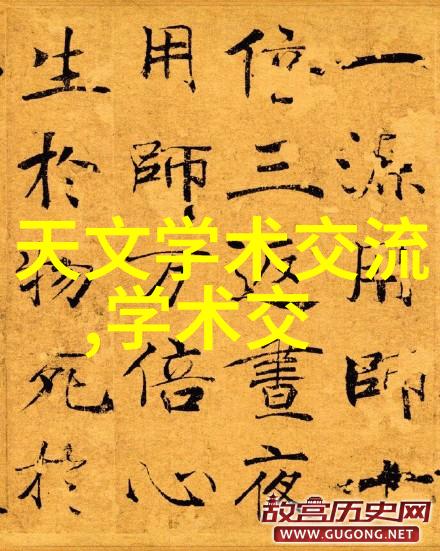 一源用師十
倍三返晝夜
用師万倍心
生於物死於
天文学术交流
,学术交
故宫历史网
WWW.GUGONG.NET